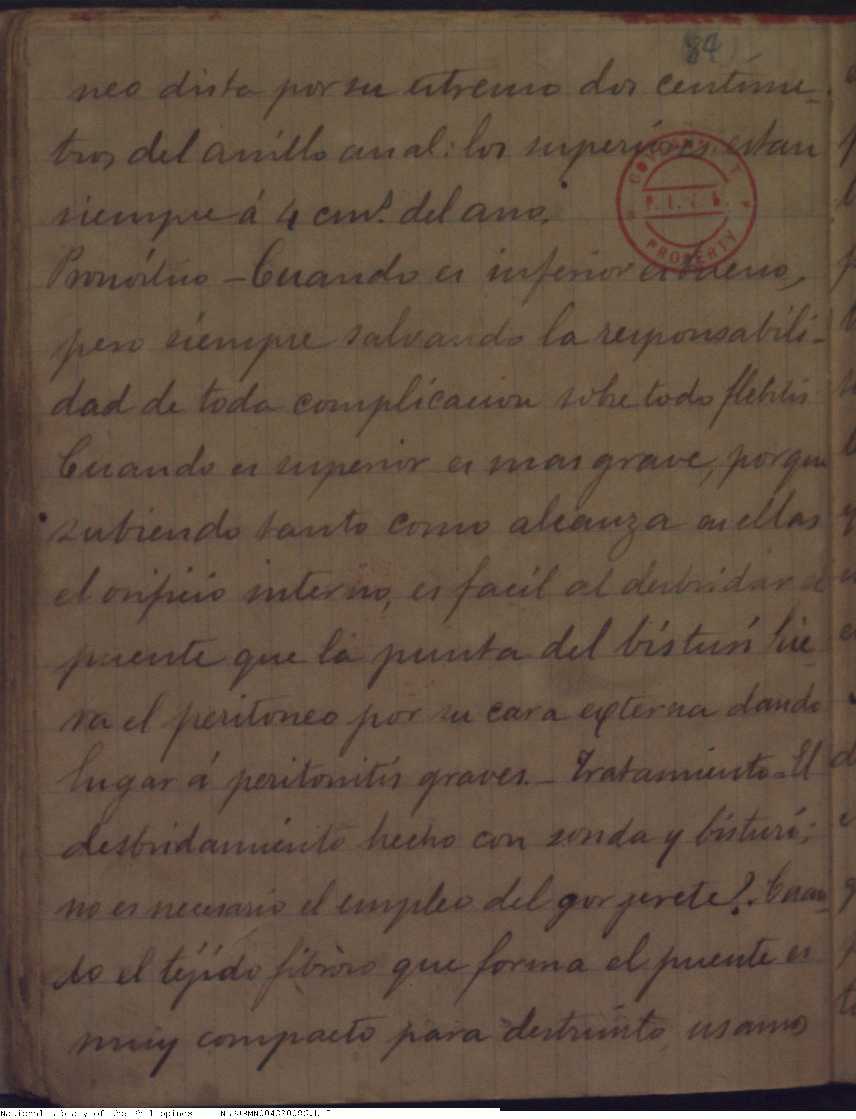 84
neo dista por su estremo dos centíme-
tros del anillo anal: los superiores estan
siempre á 4 cms. del ano.
GOVERNMENT
PROPERTY
Pronóstico - Cuando es inferior es bueno,
pero siempre salvando la responsabili-
dad de toda complicacion sobre todo flebitis
Cuando es superior es mas grave, porque
subiendo tanto como alcanza en ellas
el orificio interno, es facil al desbridar el
puente que la punta del bísturí hie-
ra el peritoneo por su cara externa dando
lugar á peritonitis graves. - Tratamiento - El
desbridamiento hecho con sonda y bísturí;
no es necesario el empleo del gorjerete?. Cuan-
do el tejído fibroso que forma el puente es
muy compacto para destruirto usamos
National Library of the Philippines